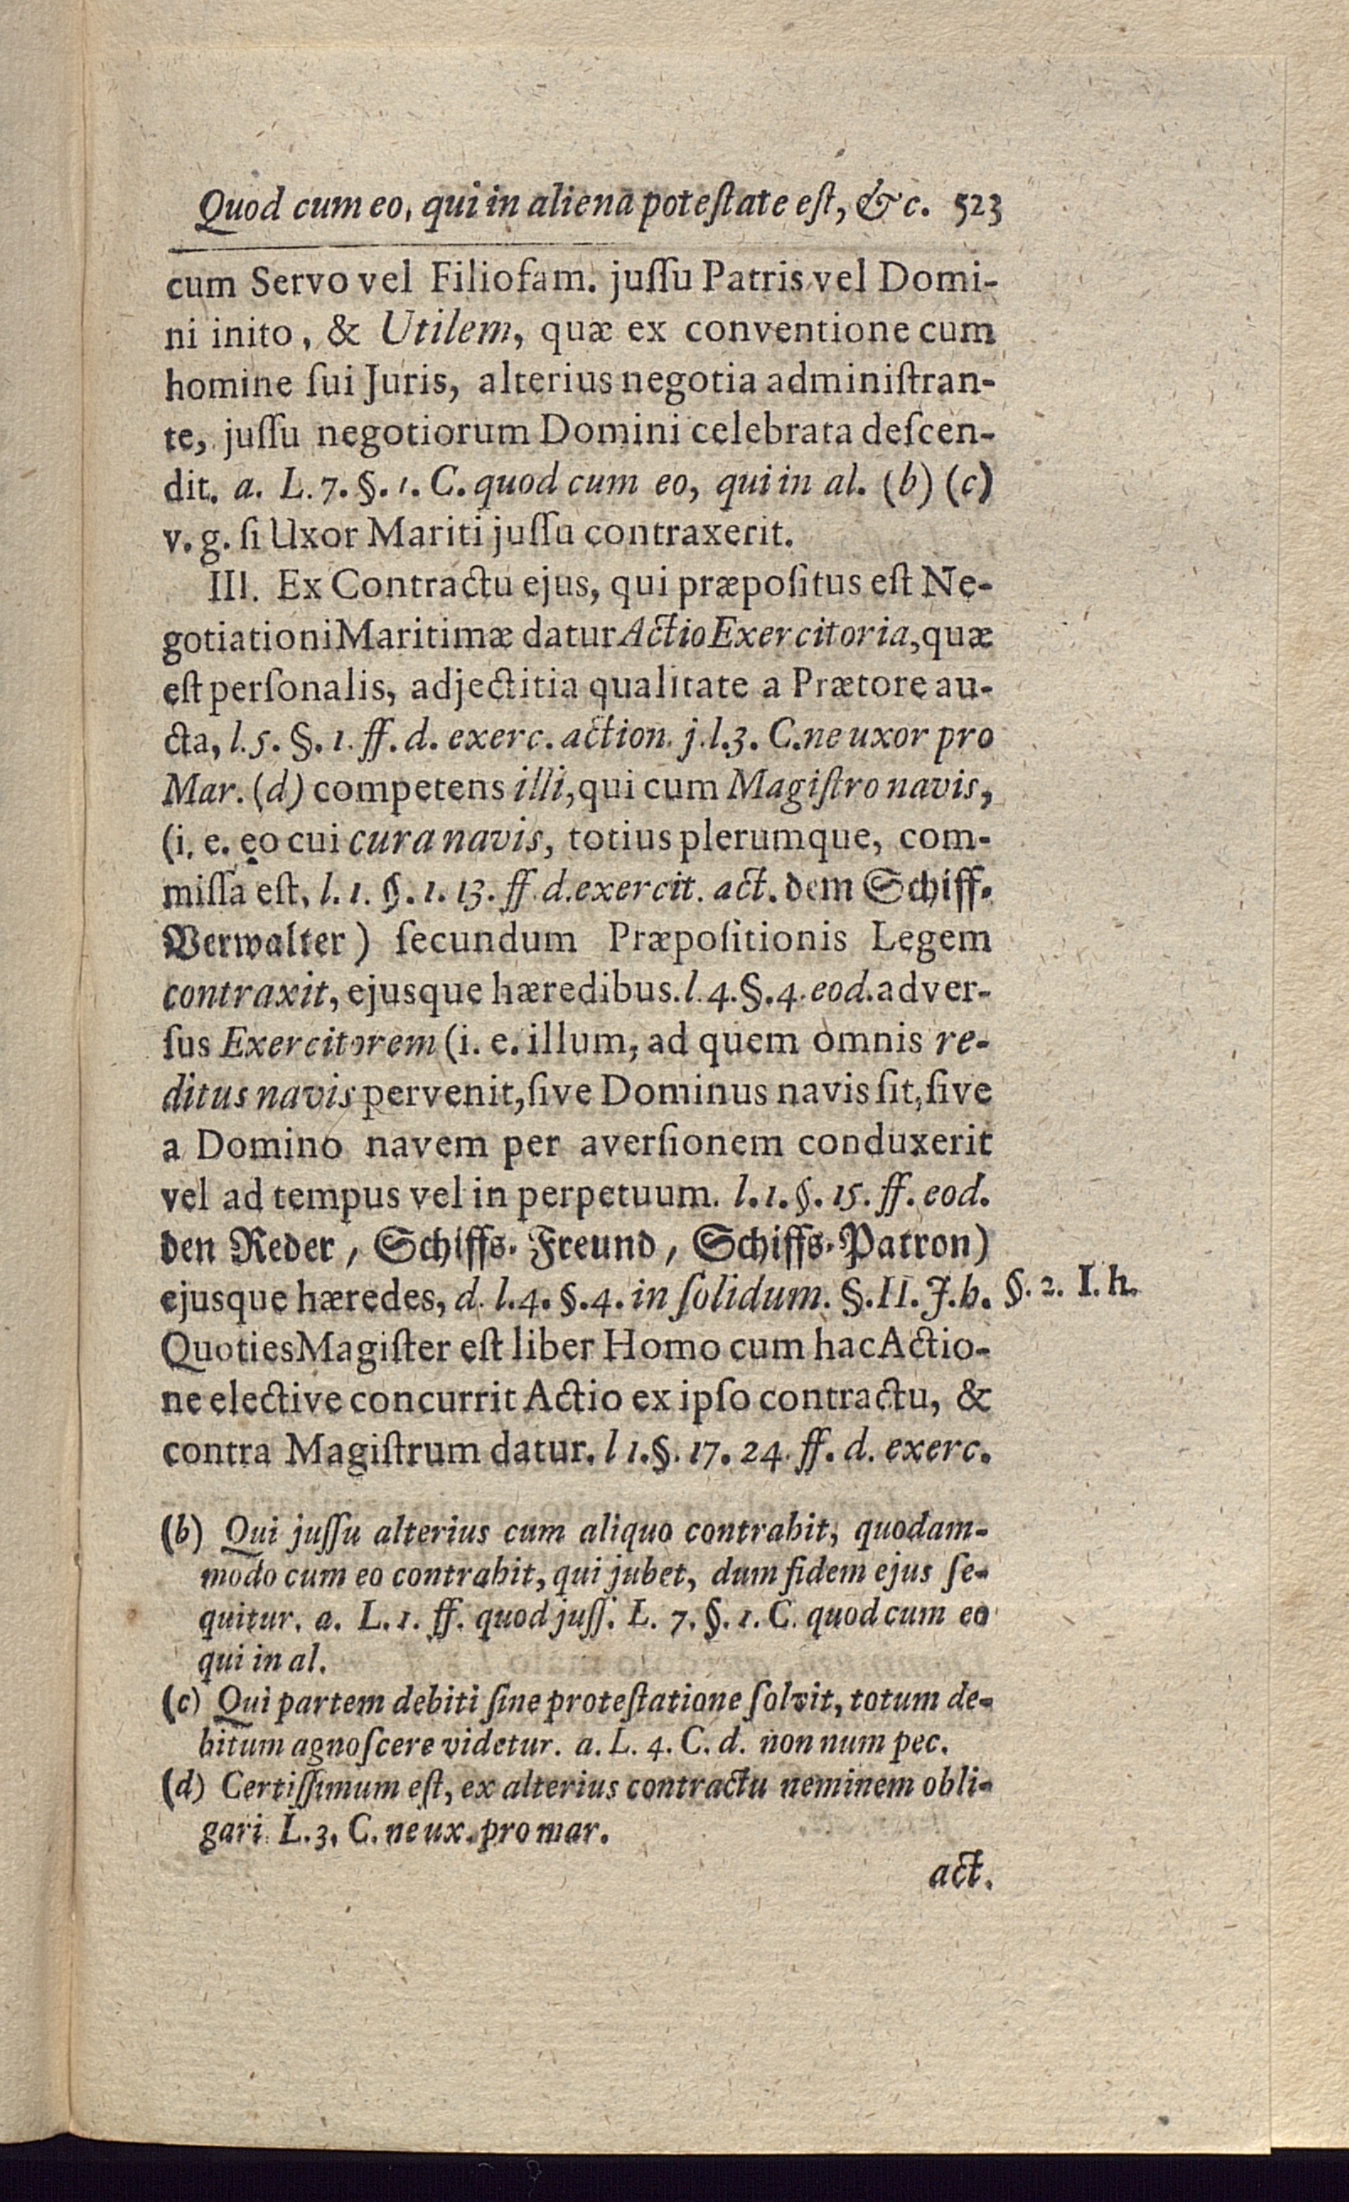 Quod cum eo, qui in alienâ poteſtate eſt, &c. 523
cum Servo vel Filiofam. juſſu Patris vel Domi-
ni inito, & Utilem, quæ ex conventione cum
homine ſui Juris, alterius negotia adminiſtran-
te, juſſu negotiorum Domini celebrata deſcen-
dit. a. L. 7. §. 1. C. quod cum eo, qui in al. (b) (c)
v. g. ſi Uxor Mariti juſſu contraxerit.
III. Ex Contractu ejus, qui præpoſitus eſt Ne-
gotiationi Maritimæ datur Actio Exercitoria, quæ
eſt perſonalis, adjectitia qualitate a Prætore au-
cta, l. 5. §. 1. ff. d. exerc. action. j. l. 3. C. ne uxor pro
Mar. (d) competens illi, qui cum Magiſtro navis,
(i. e. eo cui cura navis, totius plerumque, com-
miſſa eſt, l. 1. §. 1. 13. ff. d. exercit. act. dem Schiff-
Verwalter) ſecundum Præpoſitionis Legem
contraxit, ejusque hæredibus. l. 4. §. 4. eod. adver-
ſus Exercitorem (i. e. illum, ad quem omnis re-
ditus navis pervenit, ſive Dominus navis ſit, ſive
a Domino navem per averſionem conduxerit
vel ad tempus vel in perpetuum. l. 1. §. 15. ff. eod.
den Reder, Schiffs-Freund, Schiffs-Patron)
ejusque hæredes, d. l. 4. §. 4. in ſolidum. §. II. J. h. §. 2. I. h.
Quoties Magiſter eſt liber Homo cum hac Actio-
ne elective concurrit Actio ex ipſo contractu, &
contra Magiſtrum datur. l 1. §. 17. 24. ff. d. exerc.
(b) Qui juſſu alterius cum aliquo contrahit, quodam-
modo cum eo contrahit, qui jubet, dum fidem ejus ſe-
quitur. a. L. 1. ff. quod juſſ. L. 7. §. 1. C. quod cum eo
qui in al.
(c) Qui partem debiti ſine proteſtatione ſolvit, totum de-
bitum agnoſcere videtur. a. L. 4. C. d. non num pec.
(d) Certiſſimum eſt, ex alterius contractu neminem obli-
gari. L. 3. C. ne ux. pro mar.
act.